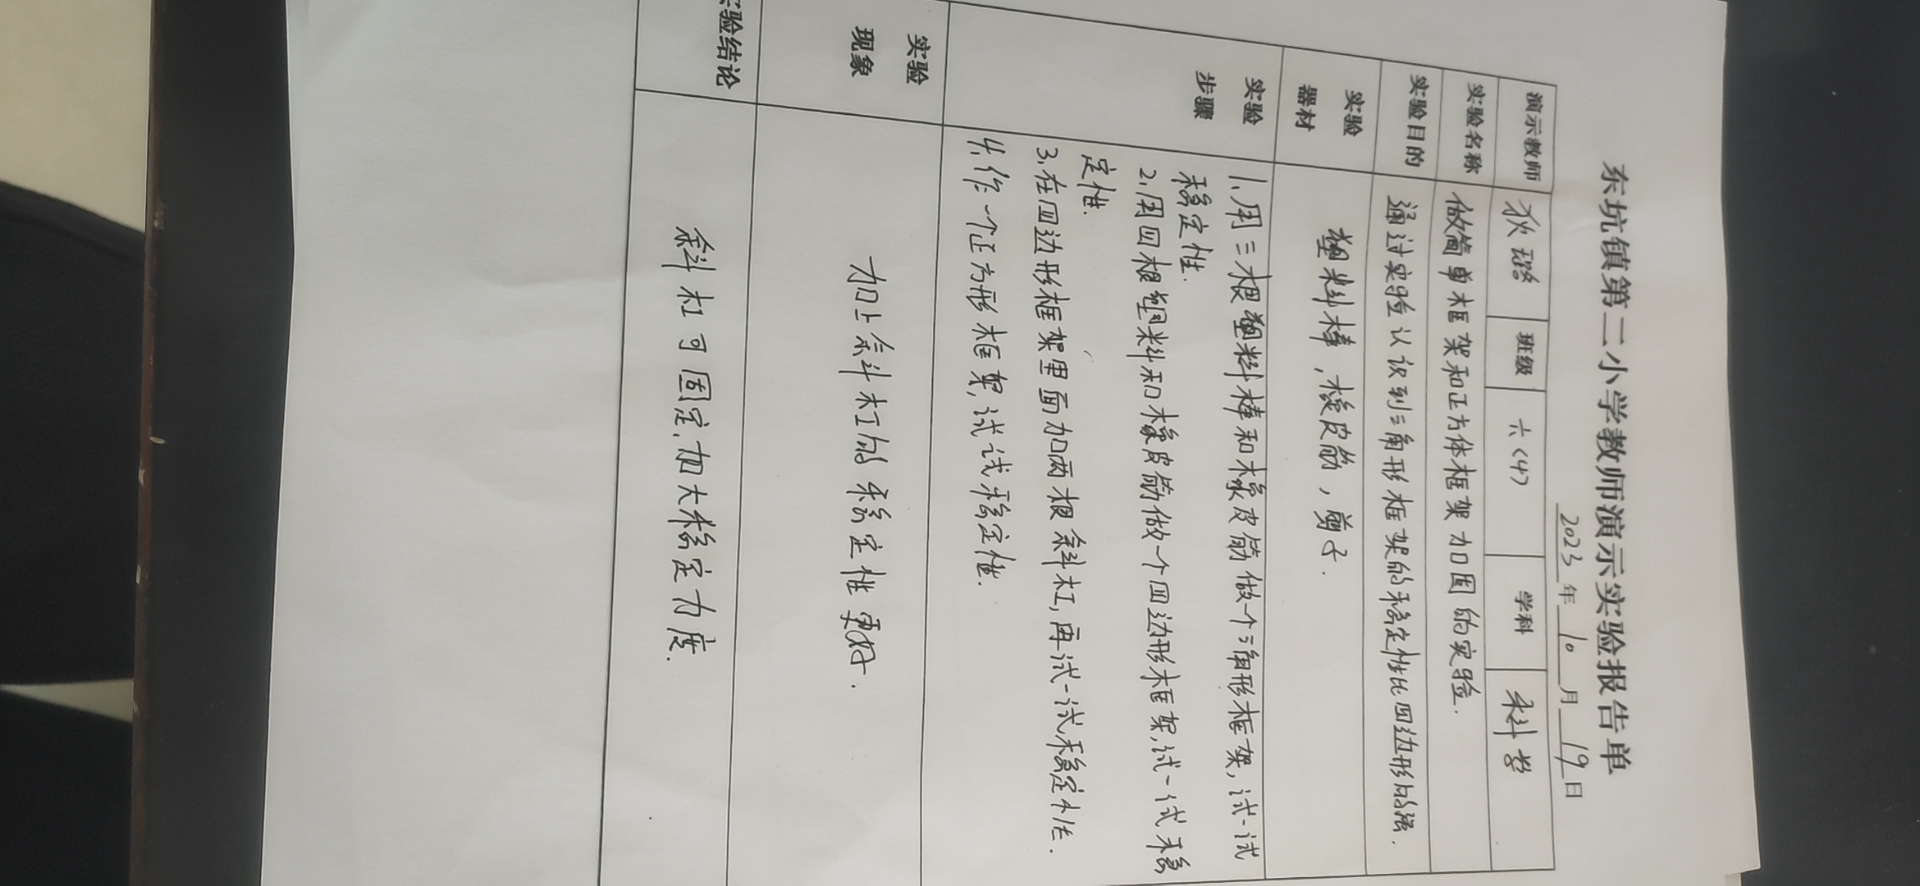 东坑镇第二小学教师演示实验报告单
2023年10月19日
演示教师 狄璐 班级 六(4) 学科 科学
实验名称 做简单框架和正方体框架加固的实验.
实验目的 通过实验认识到三角形框架的稳定性比四边形的强.
实验器材 塑料棒,橡皮筋,剪子.
实验步骤
1.用三根塑料棒和橡皮筋做个三角形框架,试一试
稳定性.
2.用四根塑料和橡皮筋做一个四边形框架,试一试稳
定性.
3.在四边形框架里面加两根斜杠,再试一试稳定性.
4.作一个正方形框架,试试稳定性.
实验现象 加上斜杠的稳定性更好.
实验结论 斜杠可固定,加大稳定力度.